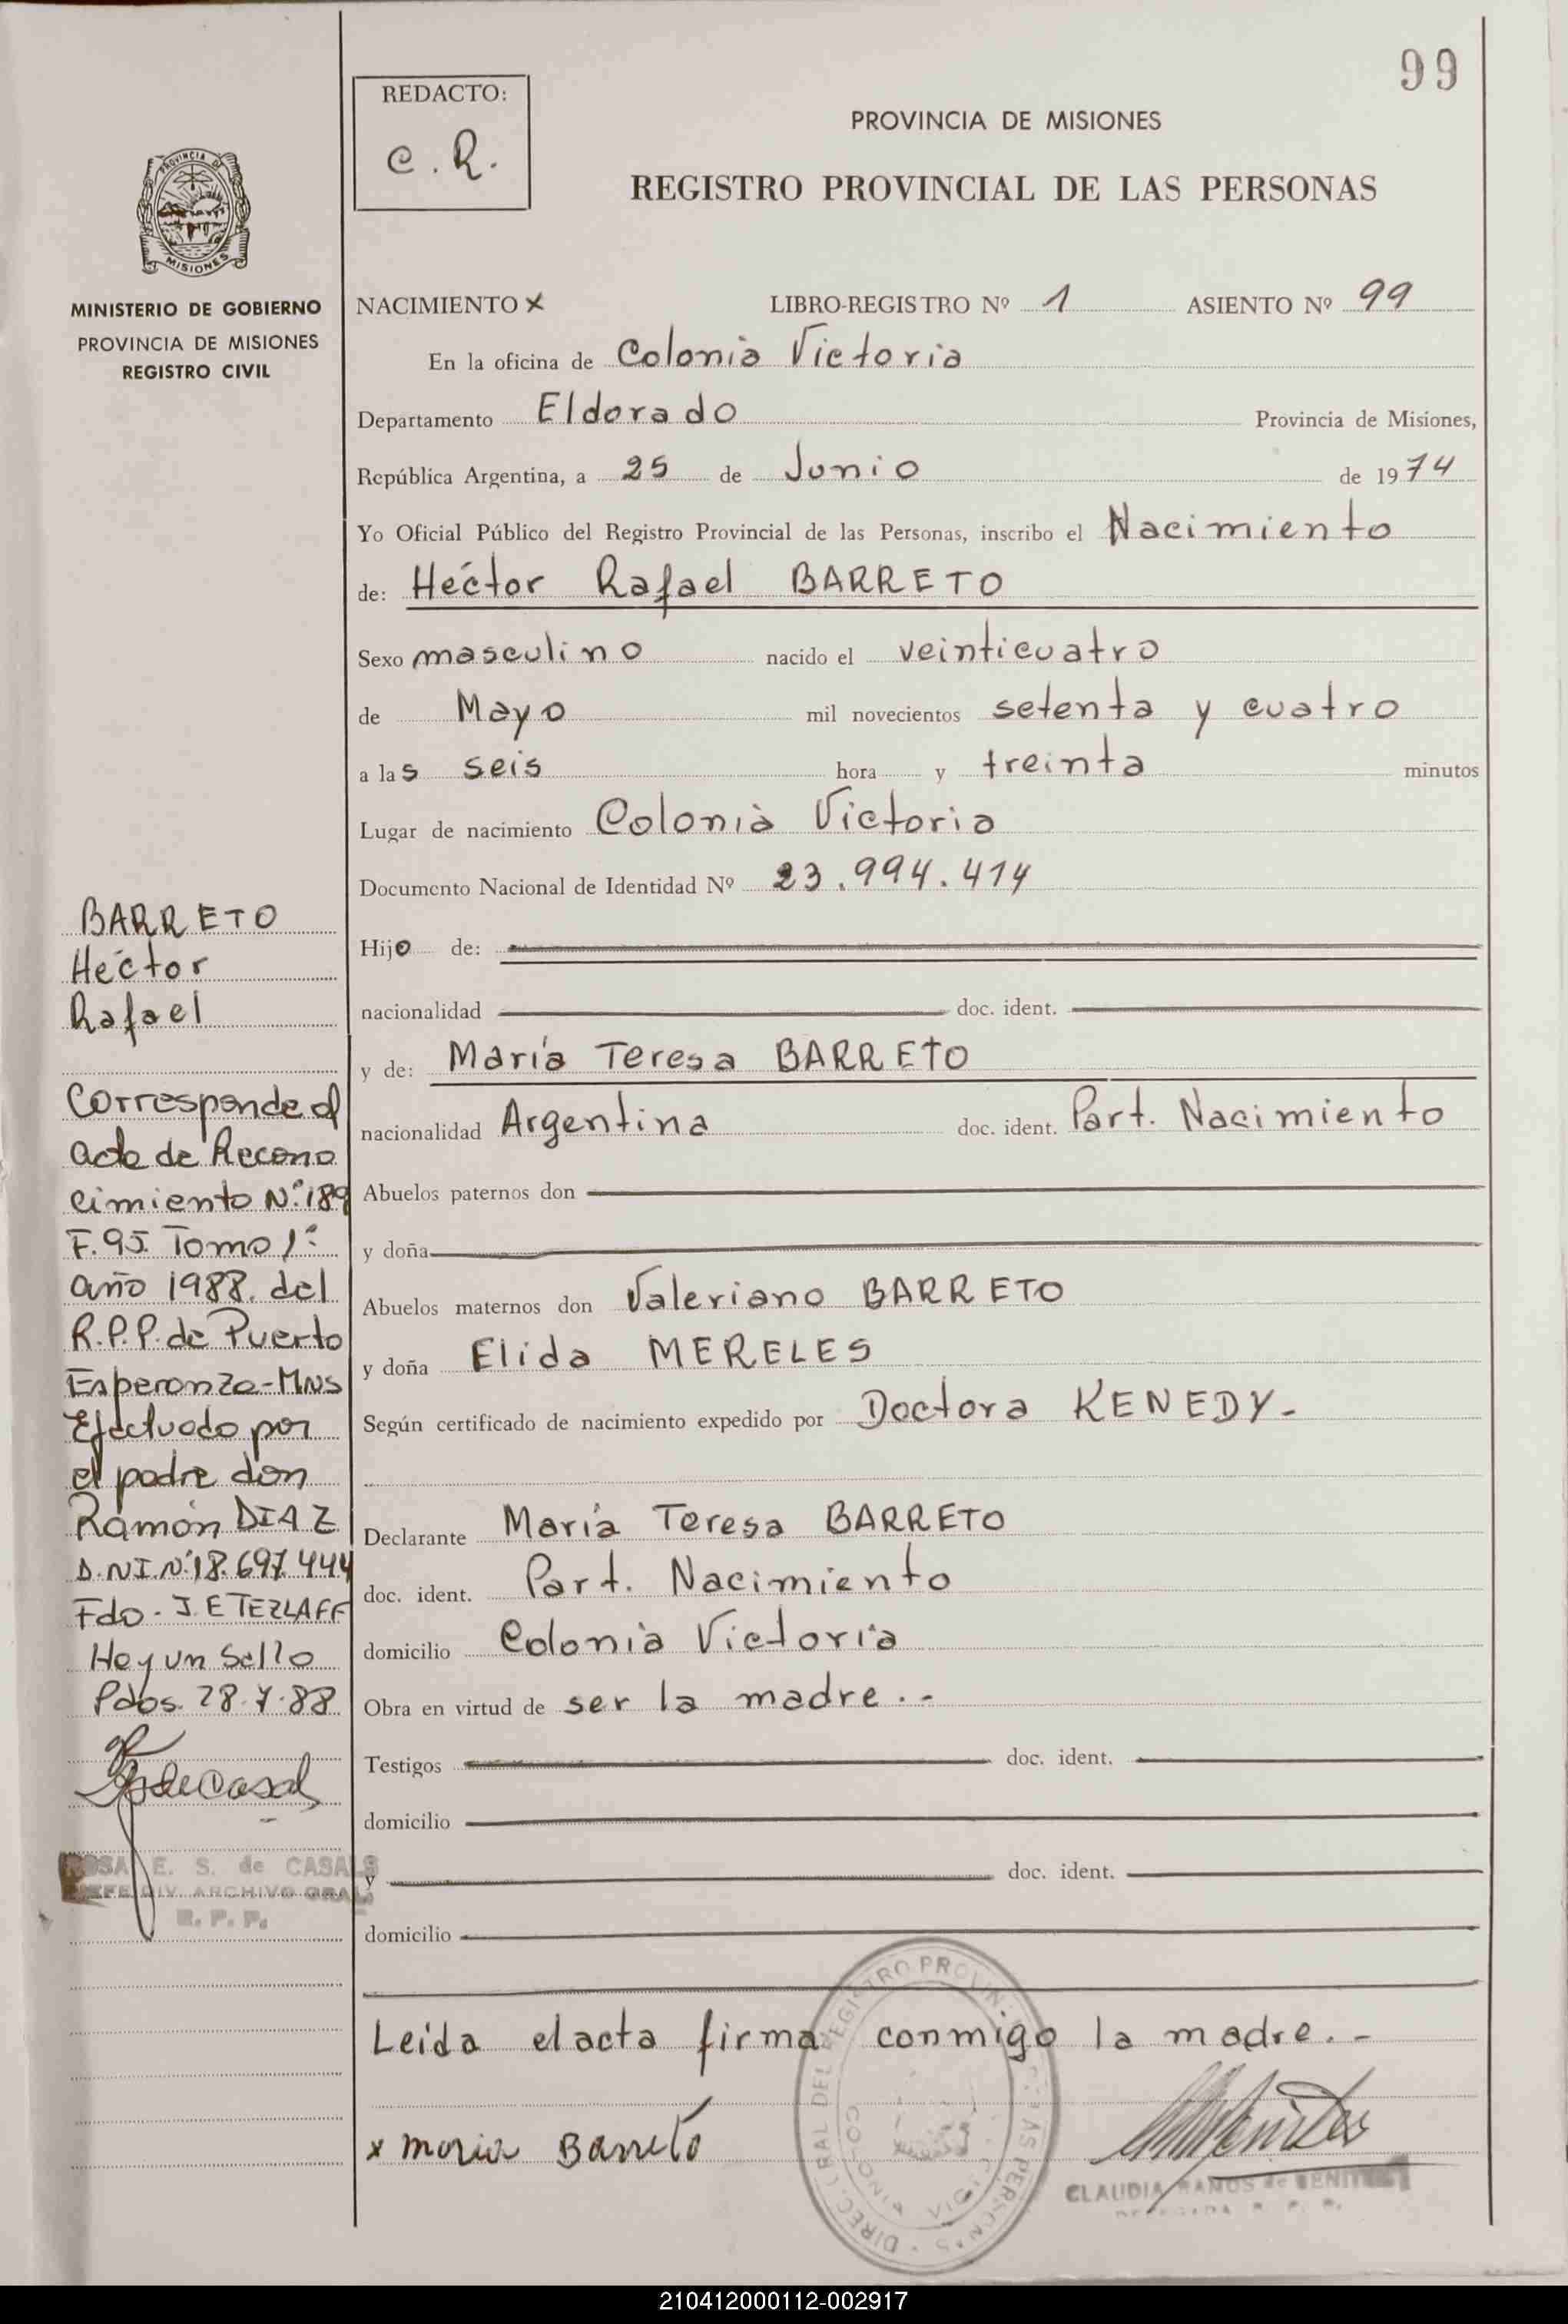 99
REDACTO:
C. R.
PROVINCIA DE MISIONES
REGISTRO PROVINCIAL DE LAS PERSONAS
PROVINCIA DE
MISIONES
MINISTERIO DE GOBIERNO
PROVINCIA DE MISIONES
REGISTRO CIVIL
NACIMIENTO x LIBRO-REGISTRO Nº 1 ASIENTO Nº 99
En la oficina de Colonia Victoria
Departamento Eldorado Provincia de Misiones,
República Argentina, a 25 de Junio de 1974
Yo Oficial Público del Registro Provincial de las Personas, inscribo el Nacimiento
de: Héctor Rafael BARRETO
Sexo masculino nacido el veinticuatro
de Mayo mil novecientos setenta y cuatro
a las seis hora y treinta minutos
Lugar de nacimiento Colonia Victoria
Documento Nacional de Identidad Nº 23.994.414
Hijo de:
nacionalidad doc. ident.
y de: María Teresa BARRETO
nacionalidad Argentina doc. ident. Part. Nacimiento
Abuelos paternos don
y doña
Abuelos maternos don Valeriano BARRETO
y doña Elida MERELES
Según certificado de nacimiento expedido por Doctora KENEDY.-
Declarante María Teresa BARRETO
doc. ident. Part. Nacimiento
domicilio Colonia Victoria
Obra en virtud de ser la madre.-
Testigos doc. ident.
domicilio
y doc. ident.
domicilio
Leida el acta firma conmigo la madre.-
x maria Barreto
CLAUDIA RAMOS de BENITEZ
BARRETO
Héctor
Rafael
Corresponde al
acta de Recono
cimiento Nº 189
F. 95. Tomo 1º
año 1988. del
R.P.P. de Puerto
Esperanza-Mns
Efectuado por
el padre don
Ramón DIAZ
D.N.I.Nº 18.697.444
Fdo. J. E TEZLAFF
Hay un Sello
Pdas. 28.7.88
ROSA E. S. de CASALS
JEFE DIV. ARCHIVO GRAL.
R. P. P.
210412000112-002917